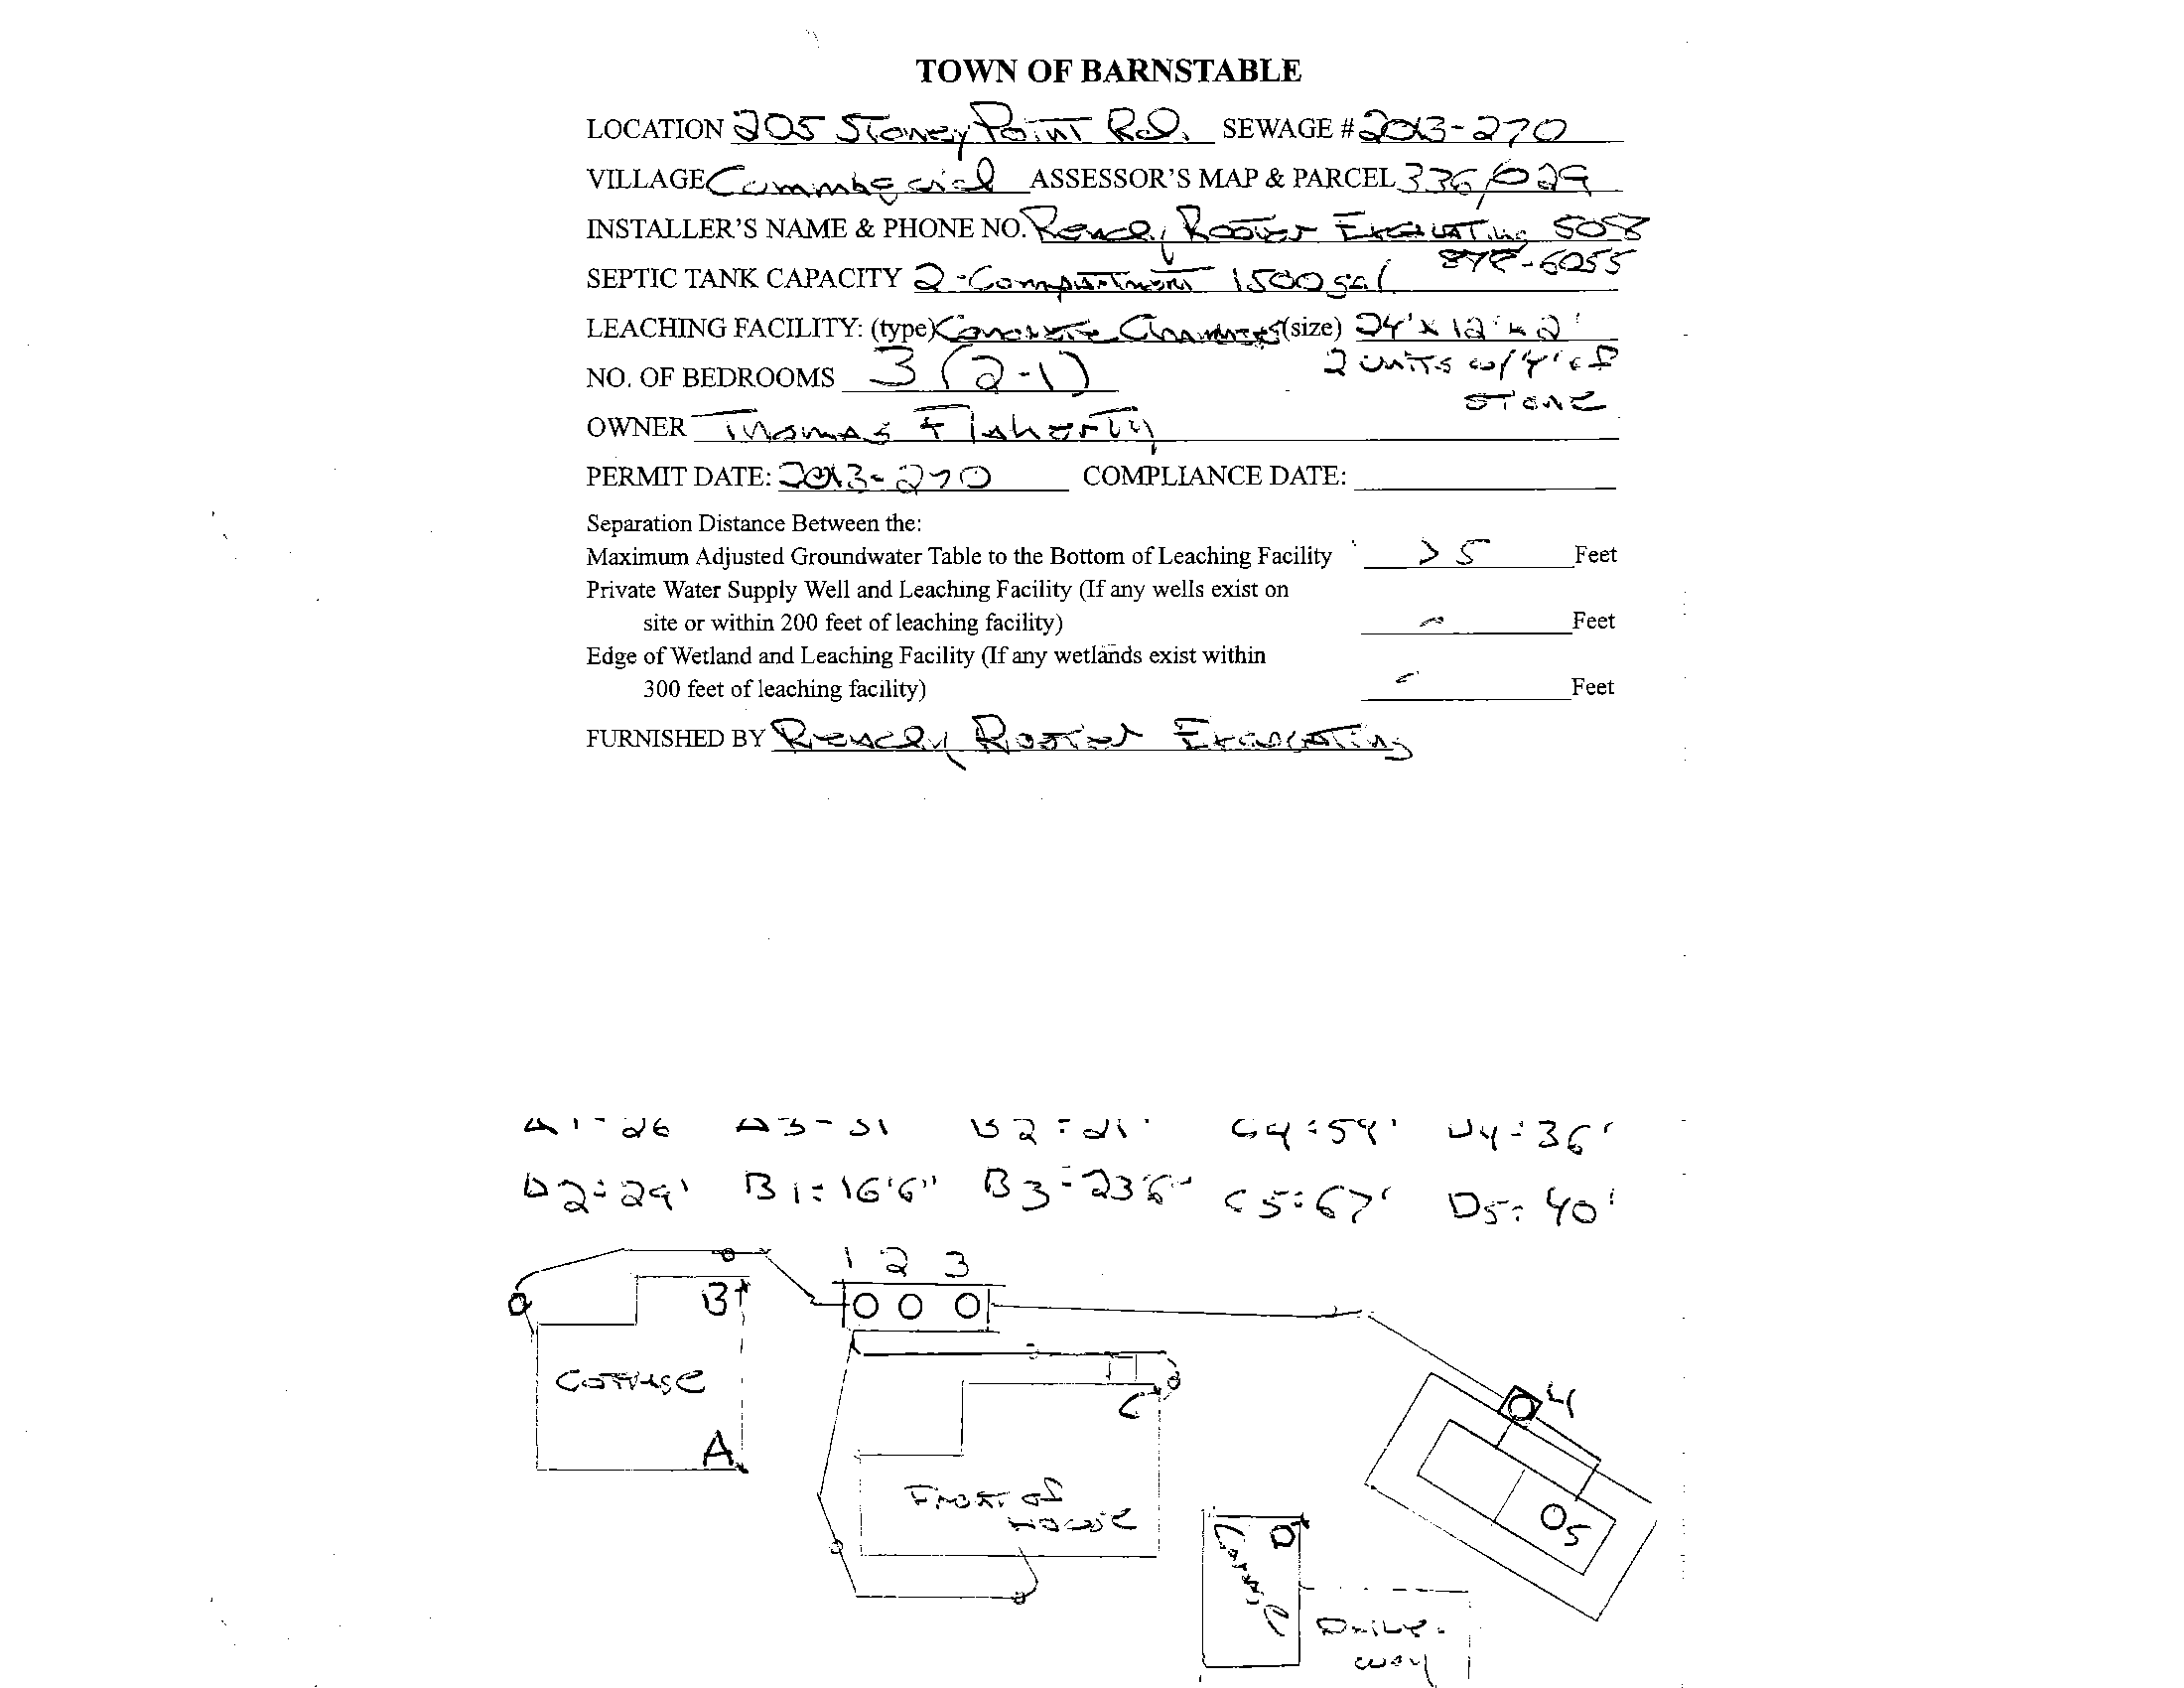 TOWN OF BARNSTABLE
LOCATION 205 Stoney Point Rd. SEWAGE # 2013-270
VILLAGE ASSESSOR'S MAP & PARCEL 336/029
INSTALLER'S NAME & PHONE NO. Ready Rooter Excavating 508
SEPTIC TANK CAPACITY 2-Compartment 1500 gal -6055
LEACHING FACILITY: (type) Concrete Chambers (size) 24' x 12' x 2'
NO. OF BEDROOMS 3 (2-1) 2 units w/ 4' of
stone
OWNER Thomas Flaherty
PERMIT DATE: 2013-270 COMPLIANCE DATE:
Separation Distance Between the:
Maximum Adjusted Groundwater Table to the Bottom of Leaching Facility > 5 Feet
Private Water Supply Well and Leaching Facility (If any wells exist on
site or within 200 feet of leaching facility) - Feet
Edge of Wetland and Leaching Facility (If any wetlands exist within
300 feet of leaching facility) - Feet
FURNISHED BY Ready Rooter Excavating
A1-26 A3-31 B2=21' C4=59' D4=36'
A2=29' B1=16'6" B3=23'6" C5=67' D5=40'
1 2 3
B
Cottage
C
4
A
Front of
House
5
D
Garage
Drive-
way